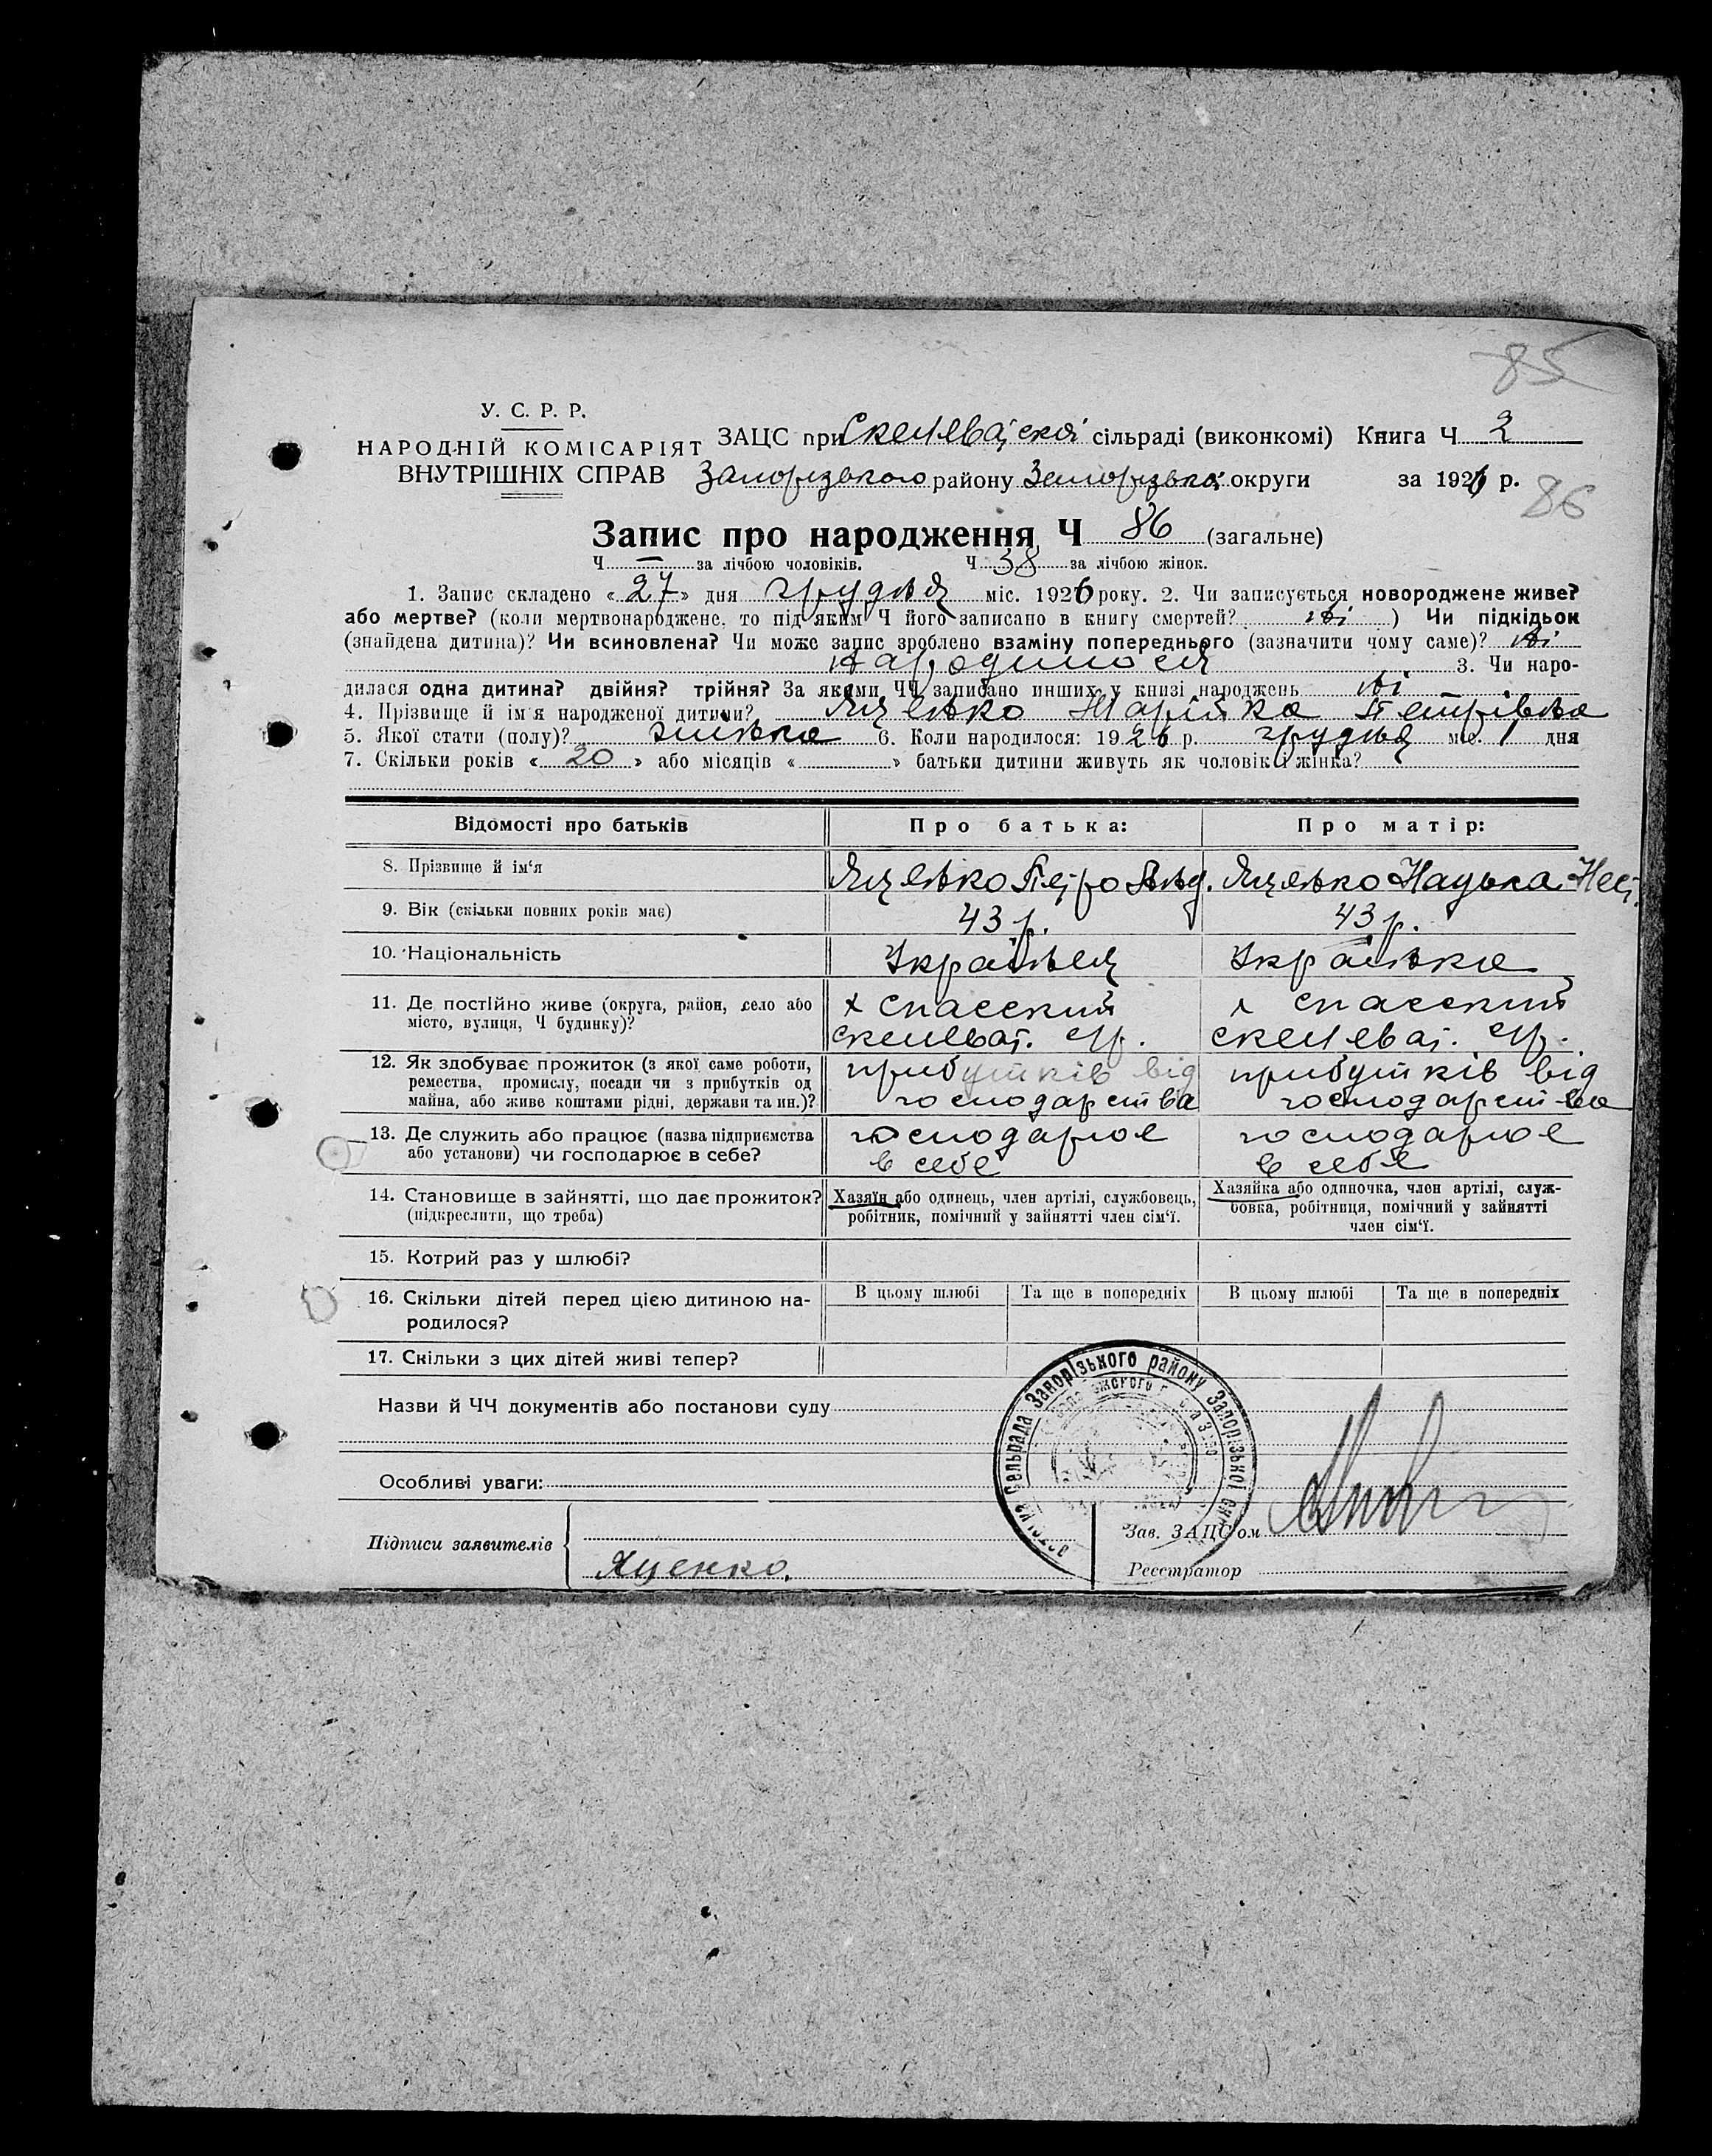 85
У. С. Р. Р.
НАРОДНІЙ КОМІСАРІЯТ
ВНУТРІШНІХ СПРАВ
ЗАЦС при сільраді (виконкомі) Книга Ч 2
Запорізького району Запорізької округи за 1926 р.
86
Запис про народження Ч 86 (загальне)
Ч — за лічбою чоловіків. Ч 38 за лічбою жінок.
1. Запис складено « 27 » дня грудня міс. 1926 року. 2. Чи записується новороджене живе?
або мертве? (коли мертвонароджене, то під яким Ч його записано в книгу смертей? ні ) Чи підкідьок
(знайдена дитина)? Чи всиновлена? Чи може запис зроблено взаміну попереднього (зазначити чому саме)? ні
народилося 3. Чи наро-
дилася одна дитина? двійня? трійня? За якими ЧЧ записано инших у книзі народжень ні
4. Прізвище й ім'я народженої дитини? Яценко Марійка Петрівна
5. Якої стати (полу)? жінка 6. Коли народилося: 1926 р. грудня міс. 1 дня
7. Скільки років « 20 » або місяців « » батьки дитини живуть як чоловік і жінка?
Відомості про батьків Про батька: Про матір:
8. Прізвище й ім'я Яценко Петро Яценко Нацька Нест.
9. Вік (скільки повних років має) 43 р. 43 р.
10. Національність Українец Українка
11. Де постійно живе (округа, район, село або х Спасский х Спасский
місто, вулиця, Ч будинку)? Скелеват. с/р. Скелеват. с/р.
12. Як здобуває прожиток (з якої саме роботи, прибутків від прибутків від
ремества, промислу, посади чи з прибутків од господарства господарства
майна, або живе коштами рідні, держави та ин.)?
13. Де служить або працює (назва підприємства господарює господарює
або установи) чи господарює в себе? в себе в себе
14. Становище в зайнятті, що дає прожиток? Хазяїн або одинець, член артілі, службовець, Хазяйка або одиночка, член артілі, служ-
(підкреслити, що треба) робітник, помічний у зайнятті член сім'ї. бовка, робітниця, помічний у зайнятті
член сім'ї.
15. Котрий раз у шлюбі?
16. Скільки дітей перед цією дитиною на- В цьому шлюбі Та ще в попередніх В цьому шлюбі Та ще в попередніх
родилося?
17. Скільки з цих дітей живі тепер?
Назви й ЧЧ документів або постанови суду
Особливі уваги:
сельрада Запорізького району Запорізької
Підписи заявителів
Яценко.
Зав. ЗАЦС'ом
Реєстратор